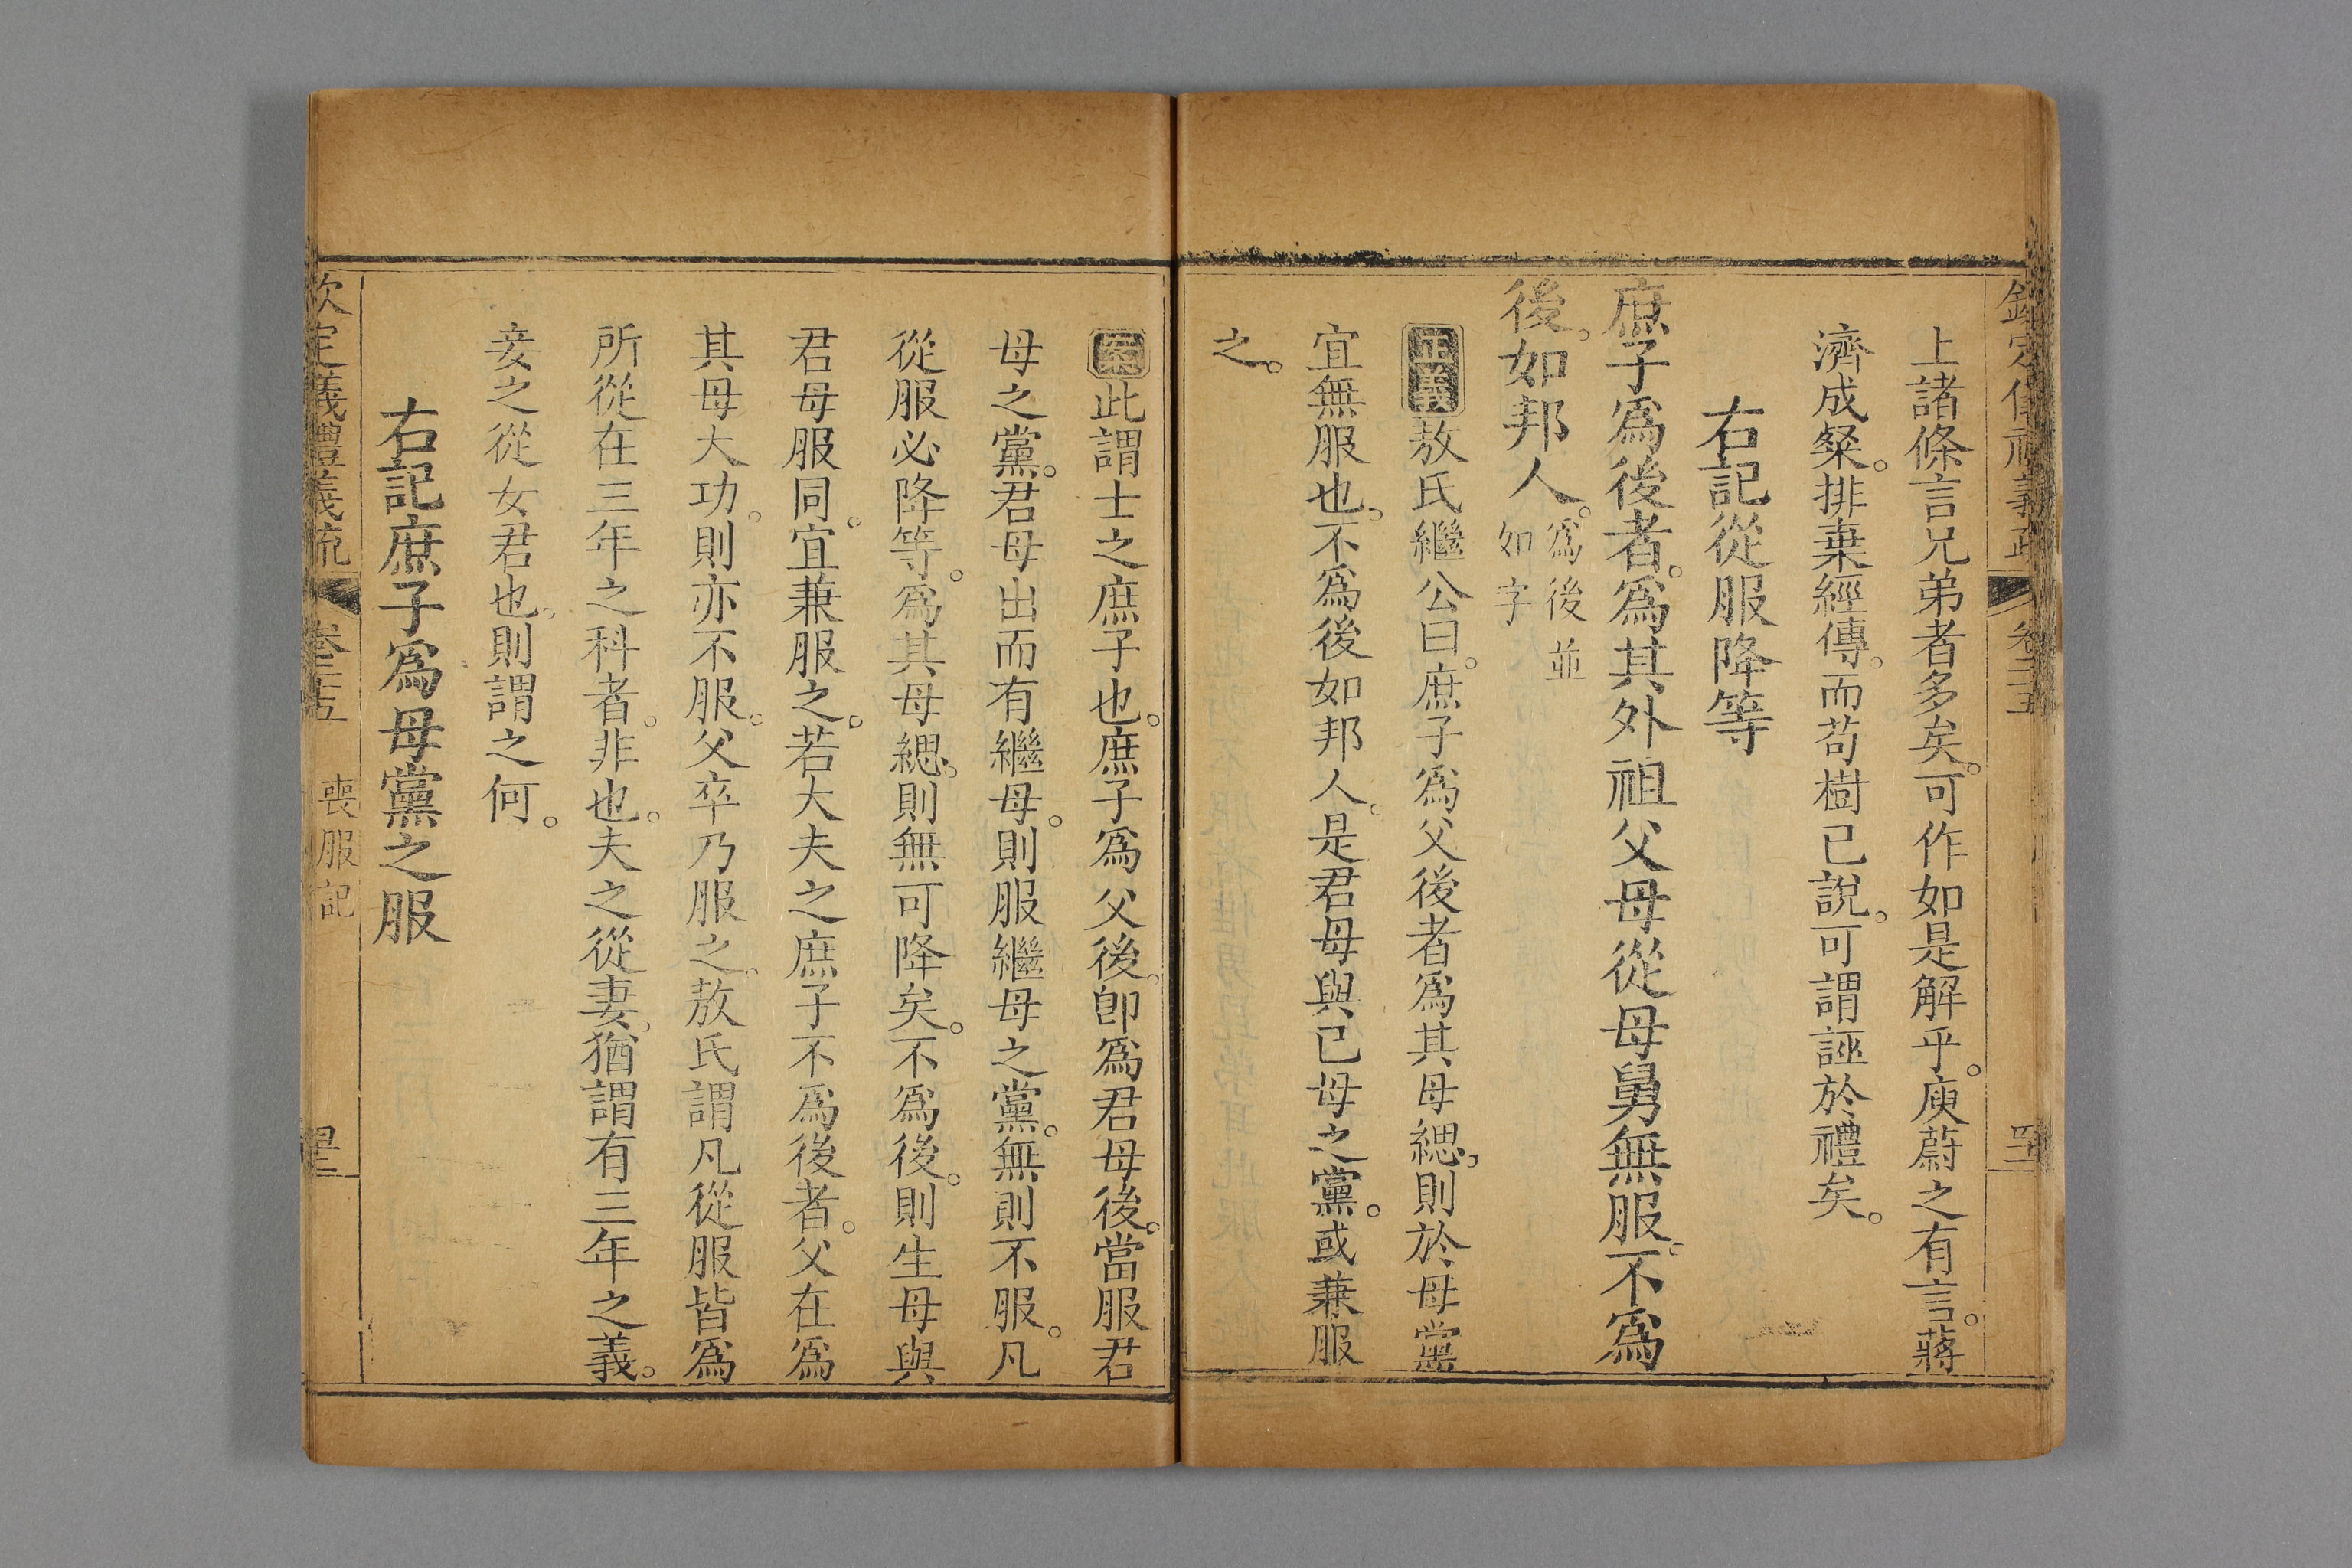 上諸條言兄弟者多矣。可作如是解乎。庾蔚之有言。蔣
濟成粲。排棄經傳。而苟樹已說。可謂誣於禮矣。
右記從服降等
庶子爲後者。爲其外祖父母從母舅無服。不爲
後。如邦人。爲後並如字
正義敖氏繼公曰。庶子爲父後者爲其母緦。則於母黨
宜無服也。不爲後如邦人。是君母與已母之黨。或兼服
之。
案此謂士之庶子也。庶子爲父後。卽爲君母後。當服君
母之黨。君母出而有繼母。則服繼母之黨。無則不服。凡
從服必降等。爲其母緦。則無可降矣。不爲後。則生母與
君母服同。宜兼服之。若大夫之庶子不爲後者。父在爲
其母大功。則亦不服。父卒乃服之。敖氏謂凡從服皆爲
所從在三年之科者。非也。夫之從妻。猶謂有三年之義。
妾之從女君也。則謂之何。
右記庶子爲母黨之服
欽定義禮義疏 卷二十五 喪服記